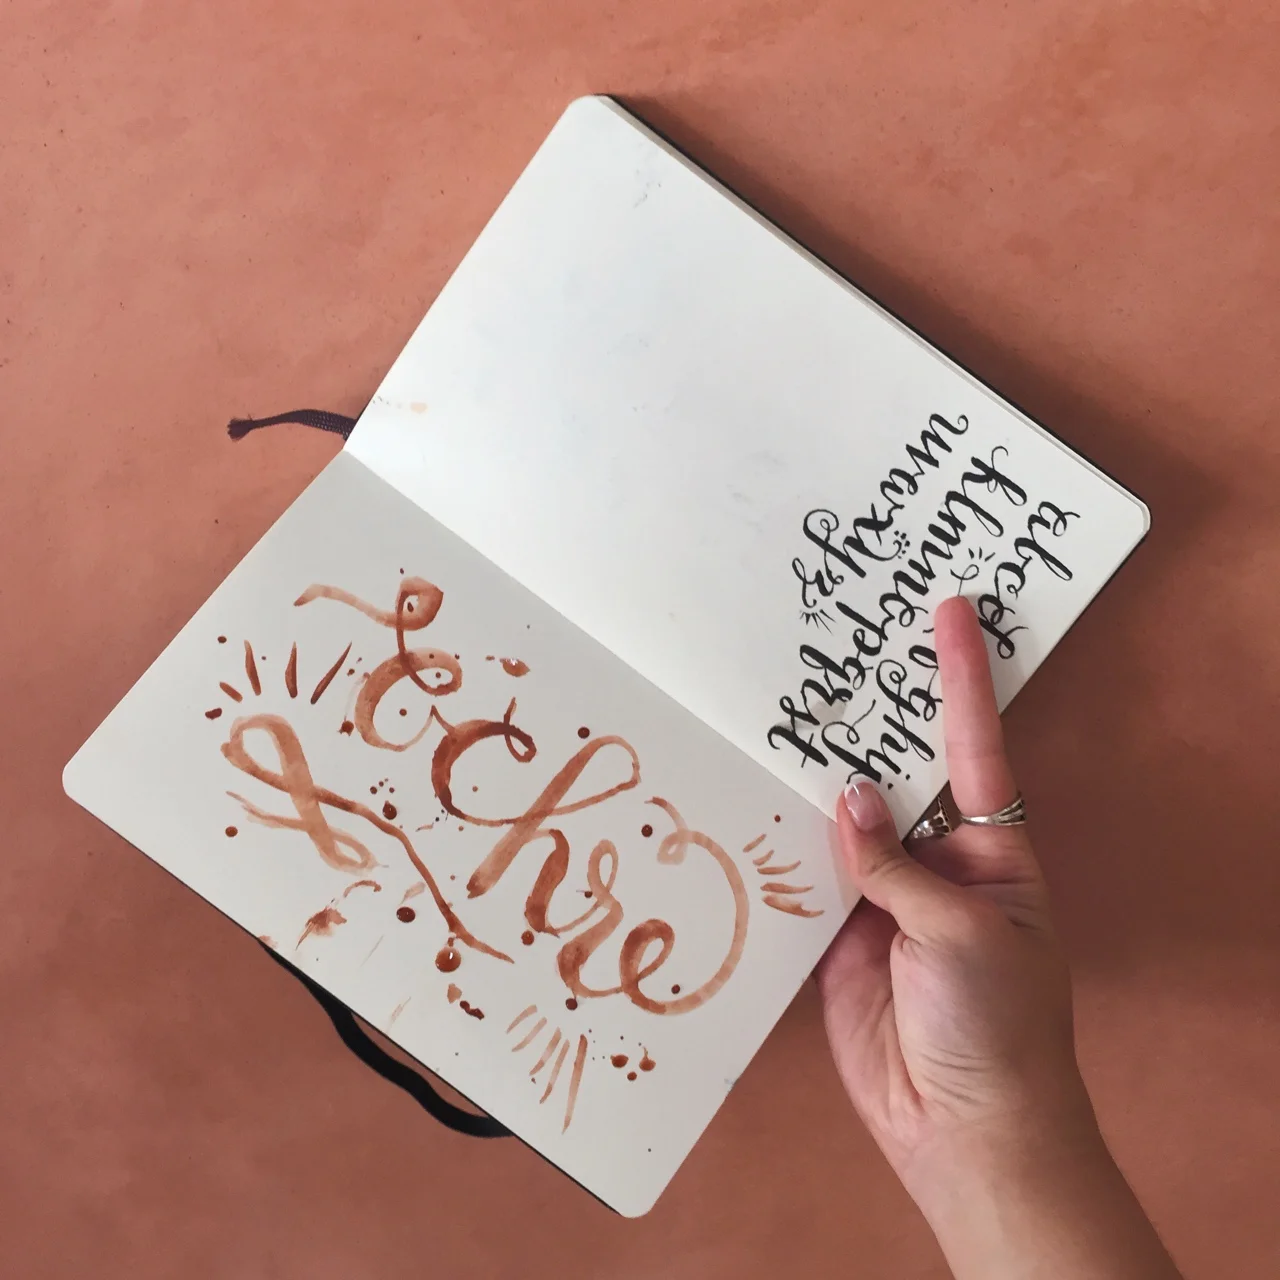 ochre
abcde fghij
klmno pqrst
uvwxyz